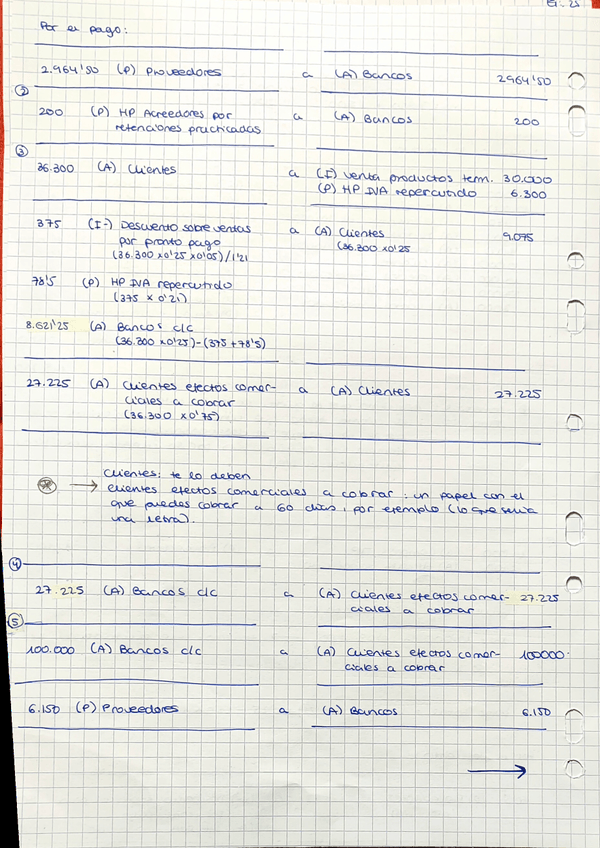 Ej. 25
Por el pago:
2.964'50 (P) Proveedores a (A) Bancos 2964'50
②
200 (P) HP Acreedores por a (A) Bancos 200
retenciones practicadas
③
36.300 (A) Clientes a (I) Venta productos term. 30.000
(P) HP IVA repercutido 6.300
375 (I-) Descuento sobre ventas a (A) Clientes 9.075
por pronto pago (36.300 x0'25
(36.300 x0'25 x0'05)/1'21
78'5 (P) HP IVA repercutido
(375 x 0'21)
8.621'25 (A) Bancos c/c
(36.300 x0'25)-(375+78'5)
27.225 (A) Clientes efectos comer- a (A) Clientes 27.225
ciales a cobrar
(36.300 x0'75)
Clientes: te lo deben
* → clientes efectos comerciales a cobrar: un papel con el
que puedes cobrar a 60 días, por ejemplo (lo que sería
una letra).
④
27.225 (A) Bancos c/c a (A) Clientes efectos comer- 27.225
ciales a cobrar
⑤
100.000 (A) Bancos c/c a (A) Clientes efectos comer- 100000.
ciales a cobrar
6.150 (P) Proveedores a (A) Bancos 6.150
→